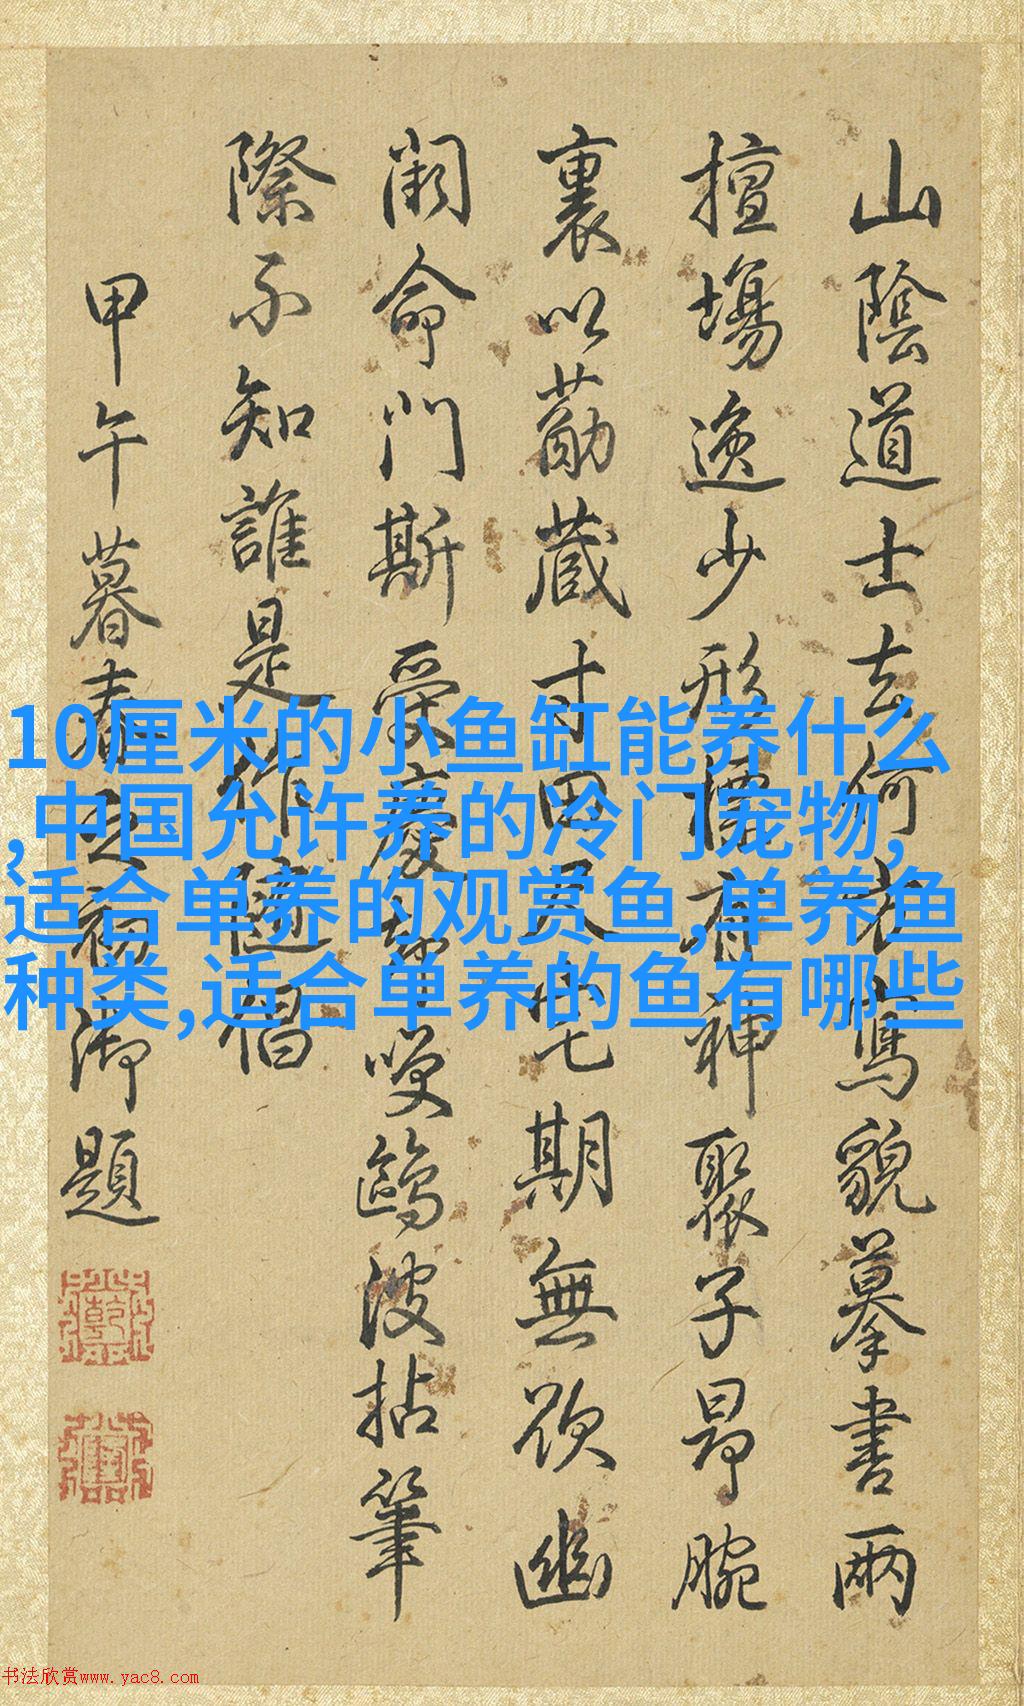 山陰道士去何鵞貌摹書兩
擅場逸少形有神聚子昂腕
裏以勛藏寸田尺宅期無欲幽
闕命門斯受慶嘆鷗波拈筆
際不知誰是作隨倡
甲午暮春之初御題
10厘米的小鱼缸能养什么
,中国允许养的冷门宠物,
适合单养的观赏鱼,单养鱼
种类,适合单养的鱼有哪些
书法欣赏www.yac8.com